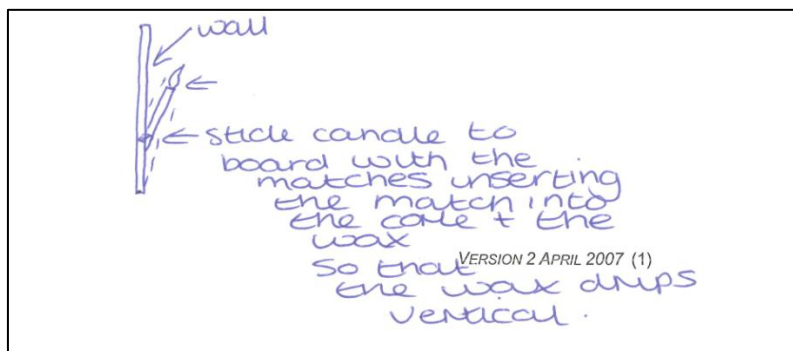 wall
stick candle to
board with the
matches inserting
the match into
the core + the
wax
VERSION 2 APRIL 2007 (1)
so that
the wax drips
vertical.